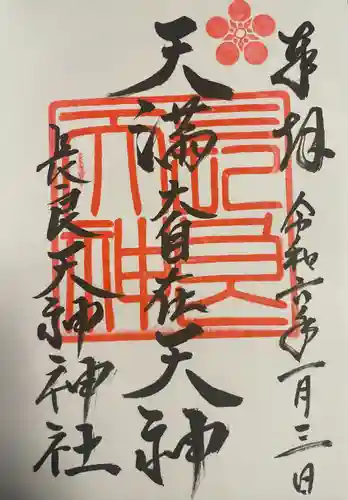 奉拝
令和六年一月三日
天満大自在天神
長良天神神社
長良天神